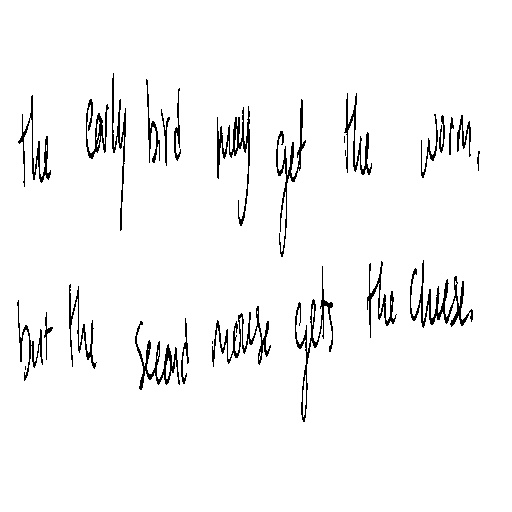 the early bird may get the worm,
but the second mouse gets the cheese.